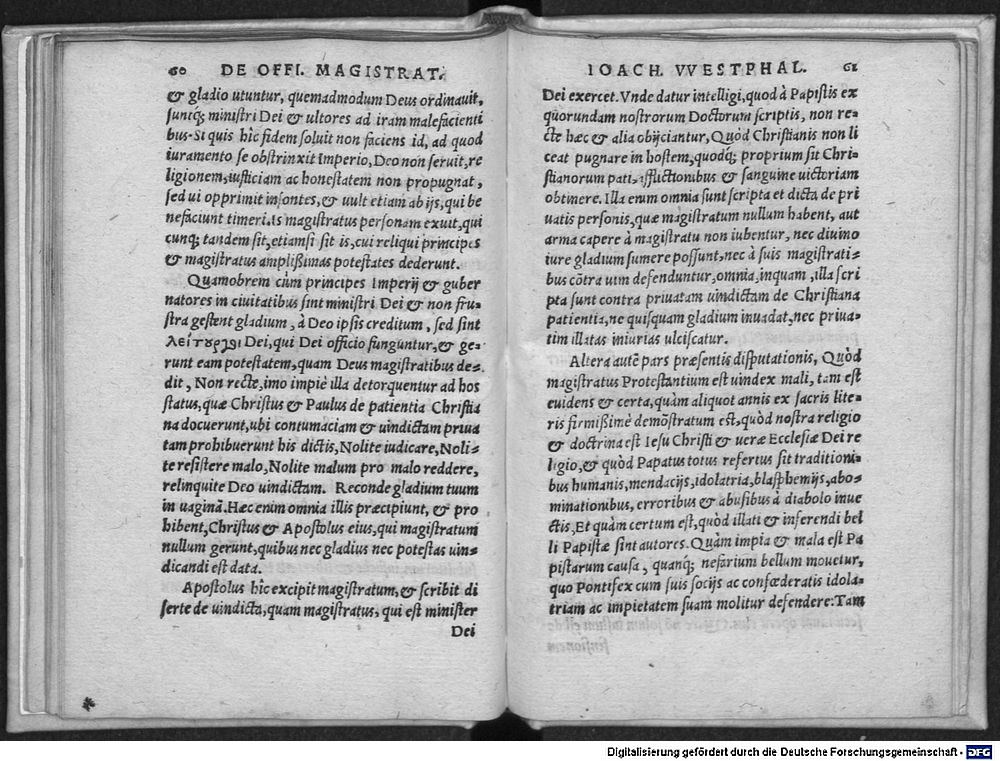 60 DE OFFI. MAGISTRAT.
& gladio utuntur, quemadmodum Deus ordinauit,
suntq; ministri Dei & ultores ad iram malefacienti
bus. Si quis hîc fidem soluit non faciens id, ad quod
iuramento se obstrinxit Imperio, Deo non seruit, re
ligionem, iusticiam ac honestatem non propugnat,
sed ui opprimit insontes, & uult etiam ab ijs, qui be
nefaciunt timeri. Is magistratus personam exuit, qui
cunq; tandem sit, etiamsi sit is, cui reliqui principes
& magistratus amplißimas potestates dederunt.
Quamobrem cùm principes Imperij & guber
natores in ciuitatibus sint ministri Dei & non fru-
stra gestent gladium, à Deo ipsis creditum, sed sint
λειτουργοὶ Dei, qui Dei officio funguntur, & ge-
runt eam potestatem, quam Deus magistratibus de-
dit, Non recte, imo impiè illa detorquentur ad hos
status, quæ Christus & Paulus de patientia Christia
na docuerunt, ubi contumaciam & uindictam priua
tam prohibuerunt his dictis, Nolite iudicare, Noli-
te resistere malo, Nolite malum pro malo reddere,
relinquite Deo uindictam. Reconde gladium tuum
in uaginã. Hæc enim omnia illis præcipiunt, & pro
hibent, Christus & Apostolus eius, qui magistratum
nullum gerunt, quibus nec gladius nec potestas uin-
dicandi est data.
Apostolus hîc excipit magistratum, & scribit di
serte de uindicta, quam magistratus, qui est minister
Dei
IOACH. VVESTPHAL. 61
Dei exercet. Vnde datur intelligi, quod à Papistis ex
quorundam nostrorum Doctorum scriptis, non re-
cte hæc & alia obijciantur, Quòd Christianis non li
ceat pugnare in hostem, quodq; proprium sit Chri-
stianorum pati, afflictionibus & sanguine uictoriam
obtinere. Illa enim omnia sunt scripta et dicta de pri
uatis personis, quæ magistratum nullum habent, aut
arma capere à magistratu non iubentur, nec diuino
iure gladium sumere possunt, nec à suis magistrati-
bus cõtra uim defenduntur, omnia, inquam, illa scri
pta sunt contra priuatam uindictam de Christiana
patientia, ne quisquam gladium inuadat, nec priua-
tim illatas iniurias ulciscatur.
Altera autẽ pars præsentis disputationis, Quòd
magistratus Protestantium est uindex mali, tam est
euidens & certa, quàm aliquot annis ex sacris lite-
ris firmißimè demõstratum est, quòd nostra religio
& doctrina est Iesu Christi & ueræ Ecclesiæ Dei re
ligio, & quòd Papatus totus refertus sit traditioni-
bus humanis, mendacijs, idolatria, blasphemijs, abo-
minationibus, erroribus & abusibus à diabolo inue
ctis, Et quàm certum est, quòd illati & inferendi bel
li Papistæ sint autores. Quàm impia & mala est Pa
pistarum causa, quanq; nefarium bellum mouetur,
quo Pontifex cum suis socijs ac confœderatis idola-
triam ac impietatem suam molitur defendere: Tam
Digitalisierung gefördert durch die Deutsche Forschungsgemeinschaft - DFG